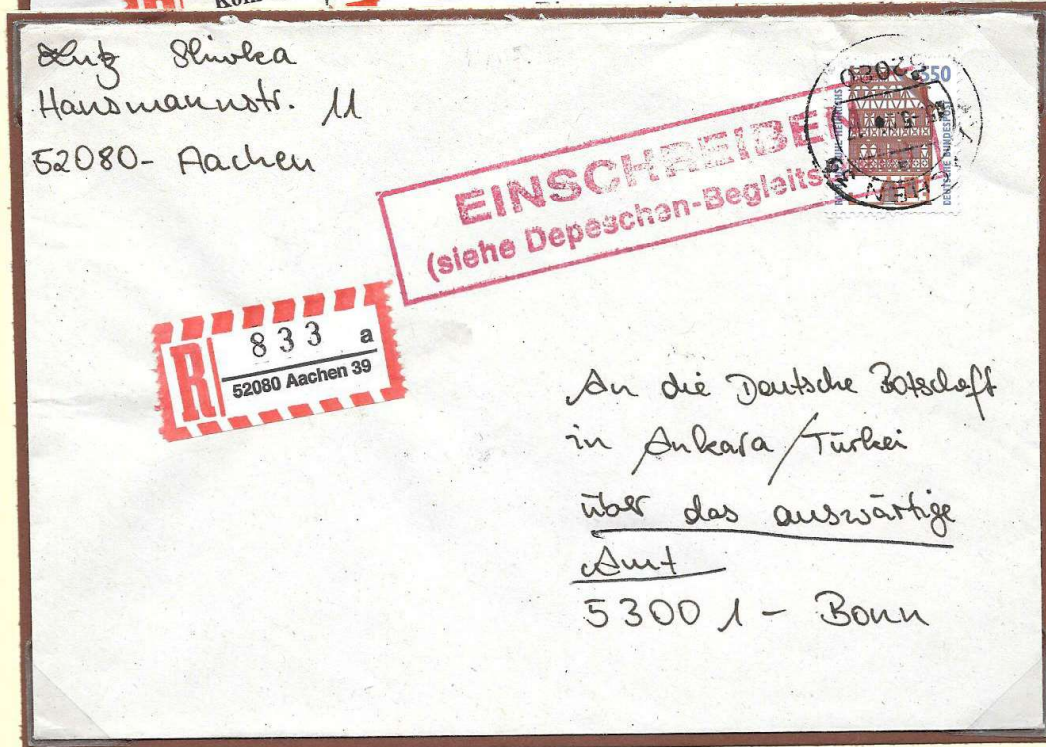 Lutz Slivka
Hansmannstr. 11
52080- Aachen
EINSCHREIBEN
(siehe Depeschen-Begleits
550
DEUTSCHE BUNDESPOST
52080
39
R
833 a
52080 Aachen 39
An die Deutsche Botschaft
in Ankara/Türkei
über das auswärtige
Amt
53001 - Bonn